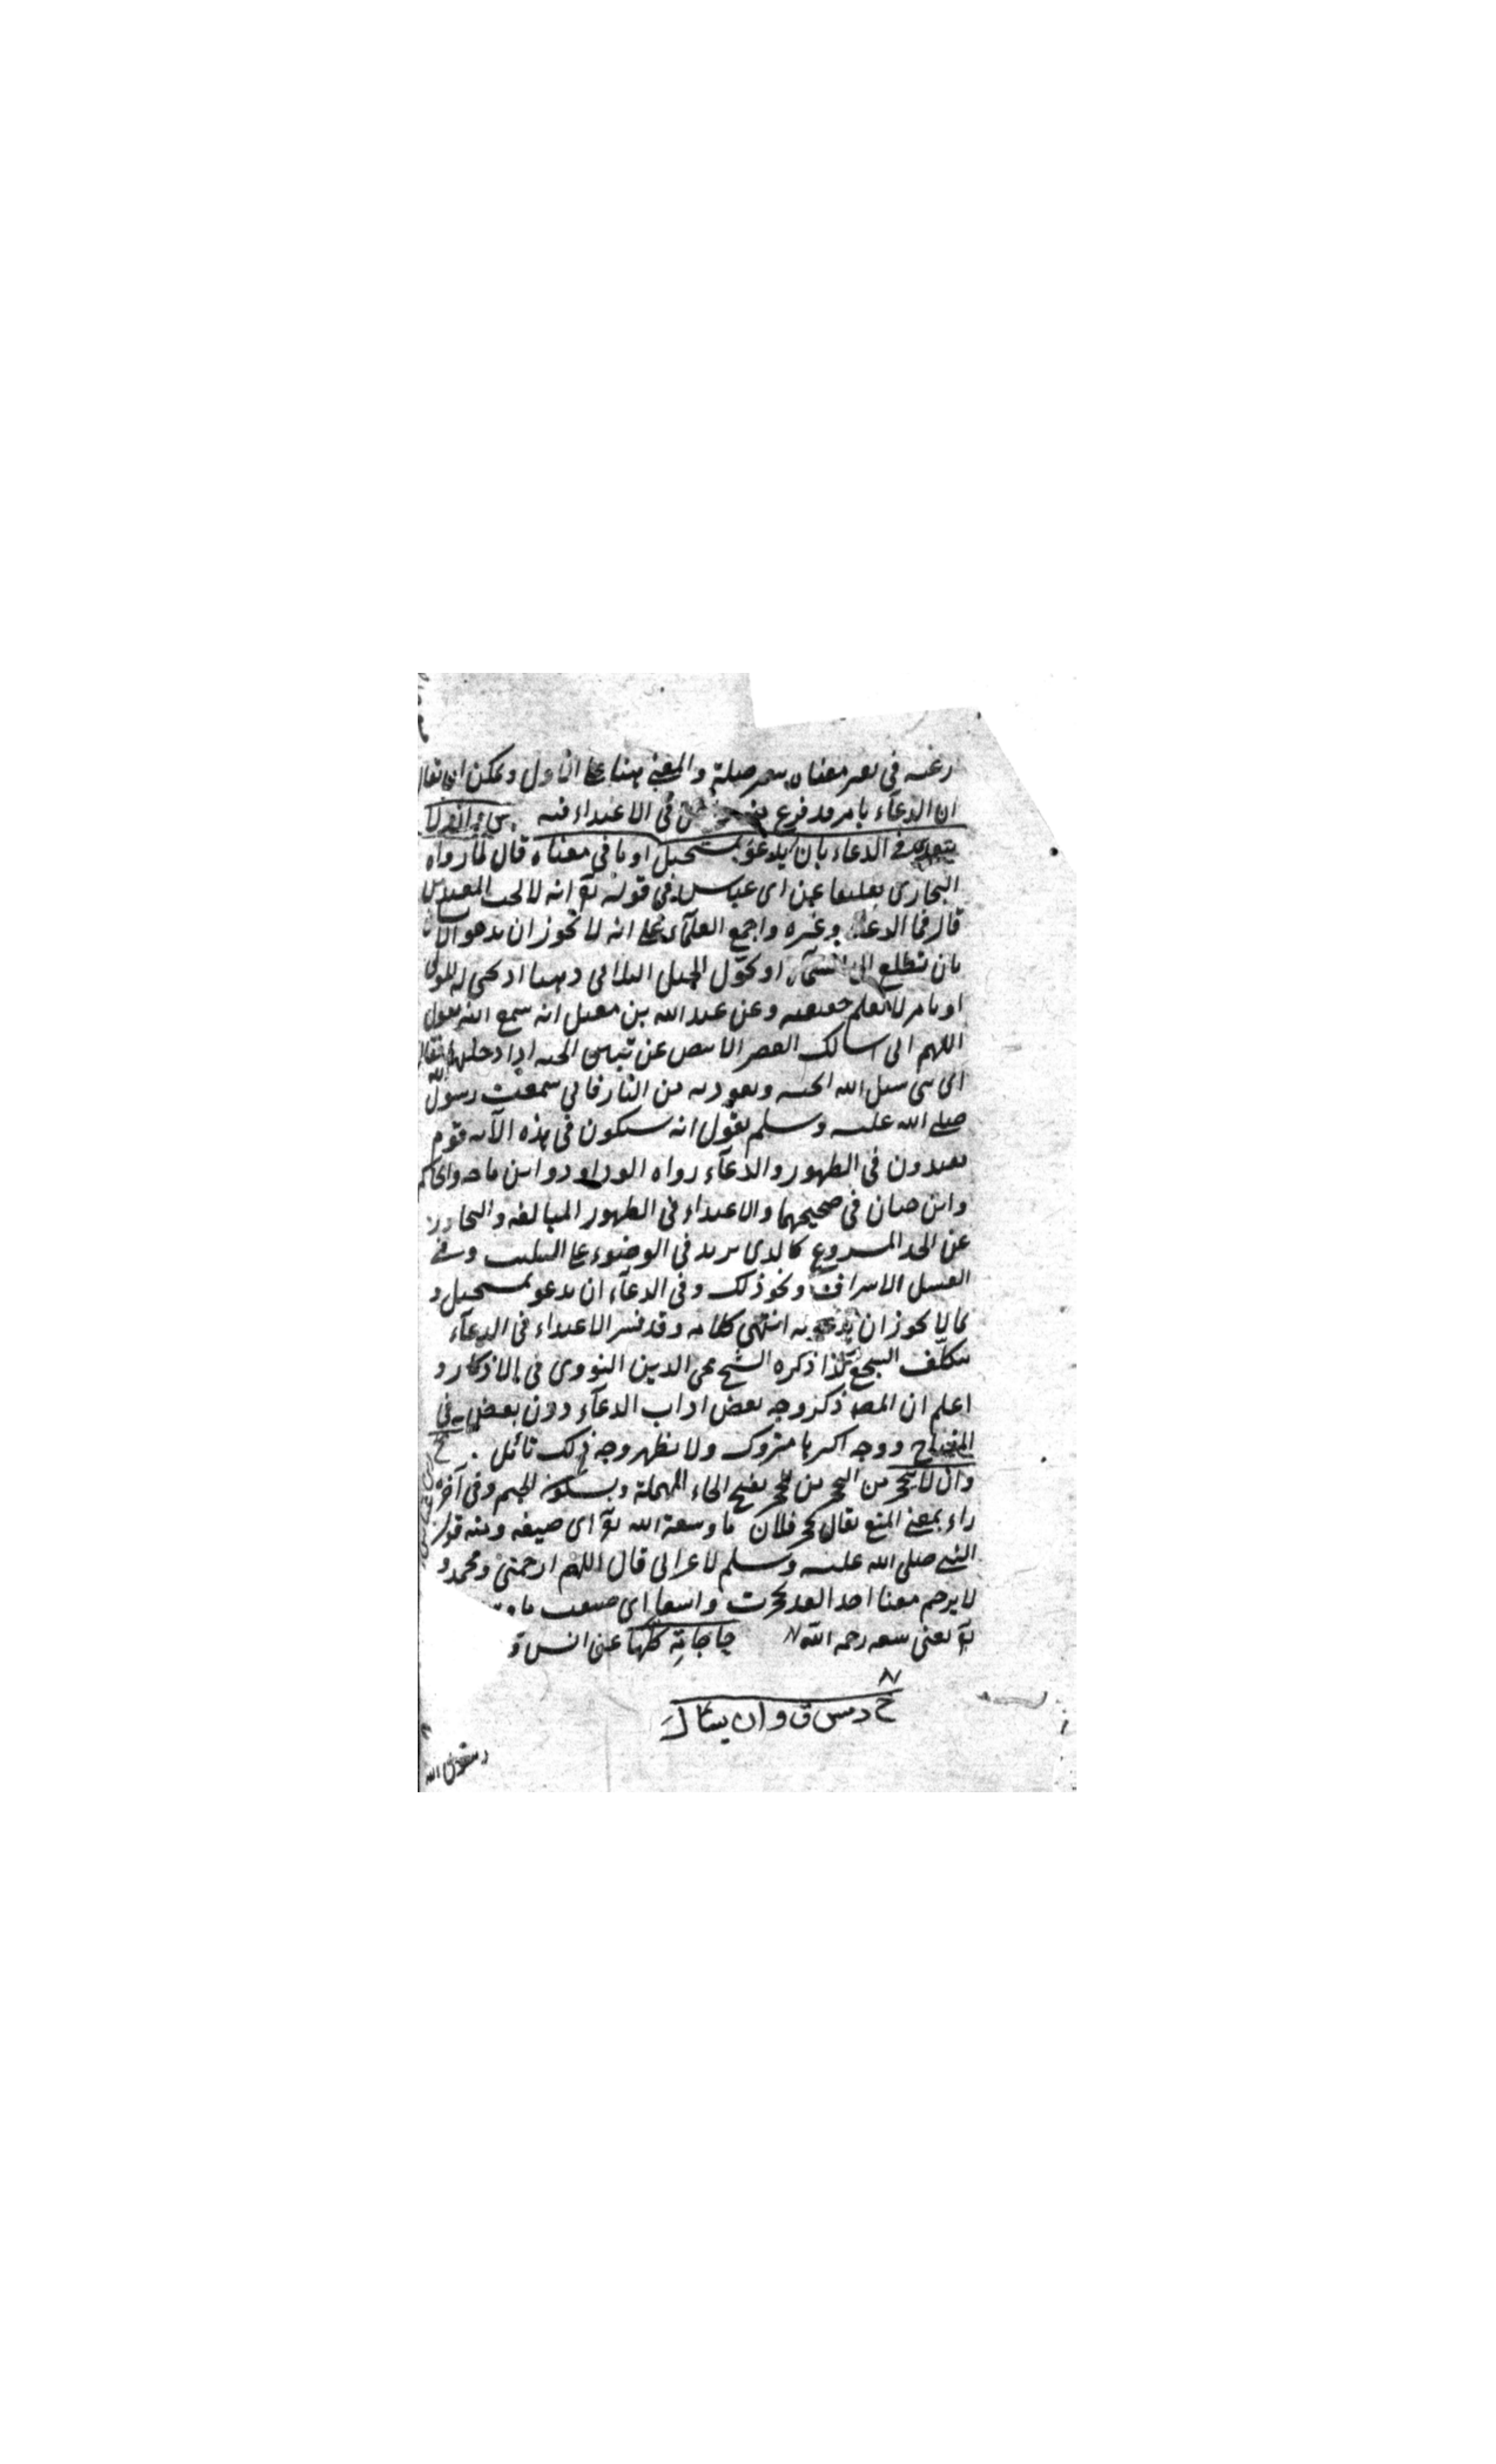 رغبه فى معناه والمعنى هنا على الاول ويمكن ان يقال
ان الدعاء بامر قد فرغ فى الاعتداء فيه وان لا
يتعدى فى الدعاء بان يدعو بمستحيل او ما فى معناه قال لما رواه
البخارى تعليقا عن ابن عباس فى قوله تع انه لا يحب المعتدين
قال فى الدعاء وغيره واجمع العلماء على انه لا يجوز ان يدعو الانسان
بان يطلع الى السماء او يحول الجبل الفلانى ذهبا او يحيى له الموتى
او بامر لا يعلم حقيقته وعن عبد الله بن مغفل انه سمع ابنه يقول
اللهم انى اسالك القصر الابيض عن يمين الجنة اذا دخلتها فقال
اى بنى سل الله الجنة وتعوذ به من النار فانى سمعت رسول الله
صلى الله عليه وسلم يقول انه سيكون فى هذه الامة قوم
يعتدون فى الطهور والدعاء رواه ابو داود وابن ماجه والحاكم
وابن حبان فى صحيحهما والاعتداء فى الطهور المبالغة والتجاوز
عن الحد المشروع كالذى يزيد فى الوضوء على الثلث وفى
الغسل الاسراف ونحو ذلك وفى الدعاء ان يدعو بمستحيل و
بما لا يجوز ان يدعو به انتهى كلامه وقد فسر الاعتداء فى الدعاء
بتكلف السجع كذا ذكره الشيخ محى الدين النووى فى الاذكار و
اعلم ان المصـ ذكر وجه بعض اداب الدعاء دون بعض فى
المفتاح ووجه اكثرها متروك ولا يظهر وجه ذلك تأمل
وان لا يتحجر من التحجر من الحجر بفتح الحاء المهملة وبسكون الجيم وفى آخره
راء بمعنى المنع يقال تحجر فلان ما وسعة الله تع اى ضيقه ومنه قول
النبى صلى الله عليه وسلم لاعرابى قال اللهم ارحمنى ومحمدا و
لا يرحم معنا احدا لقد تحجرت واسعا اى ضيقت ما
تع يعنى سعة رحمة الله حاجاته كلها عن انس
خ د س ق وان يسال
رسول الله